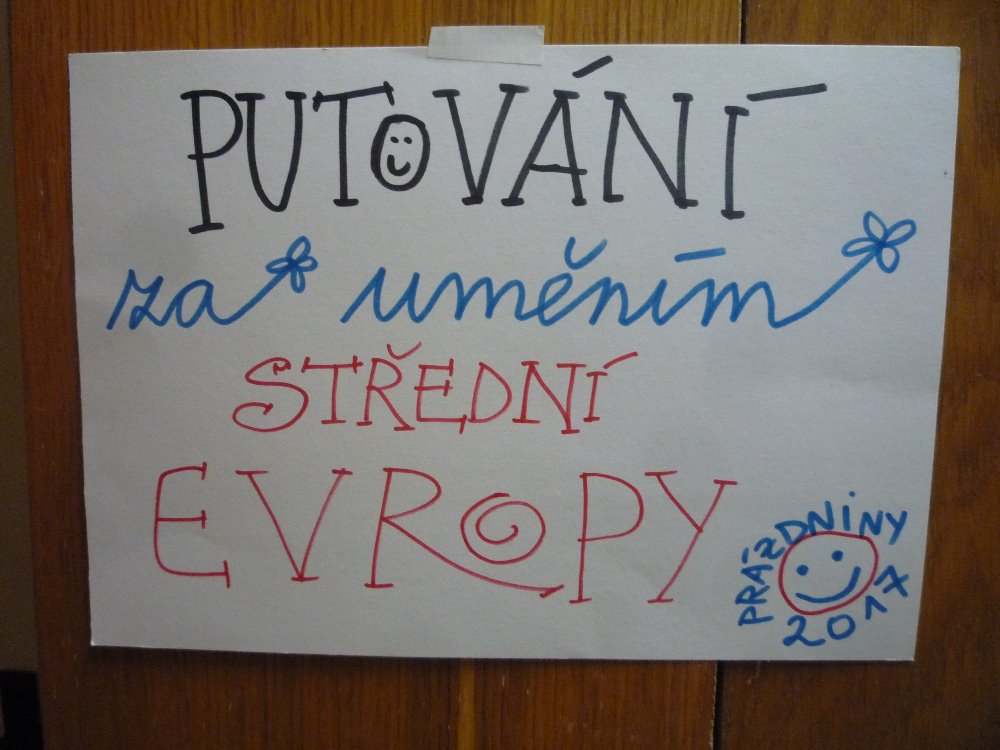 PUTOVÁNÍ
za uměním
STŘEDNÍ
EVROPY
PRÁZDNINY
2017